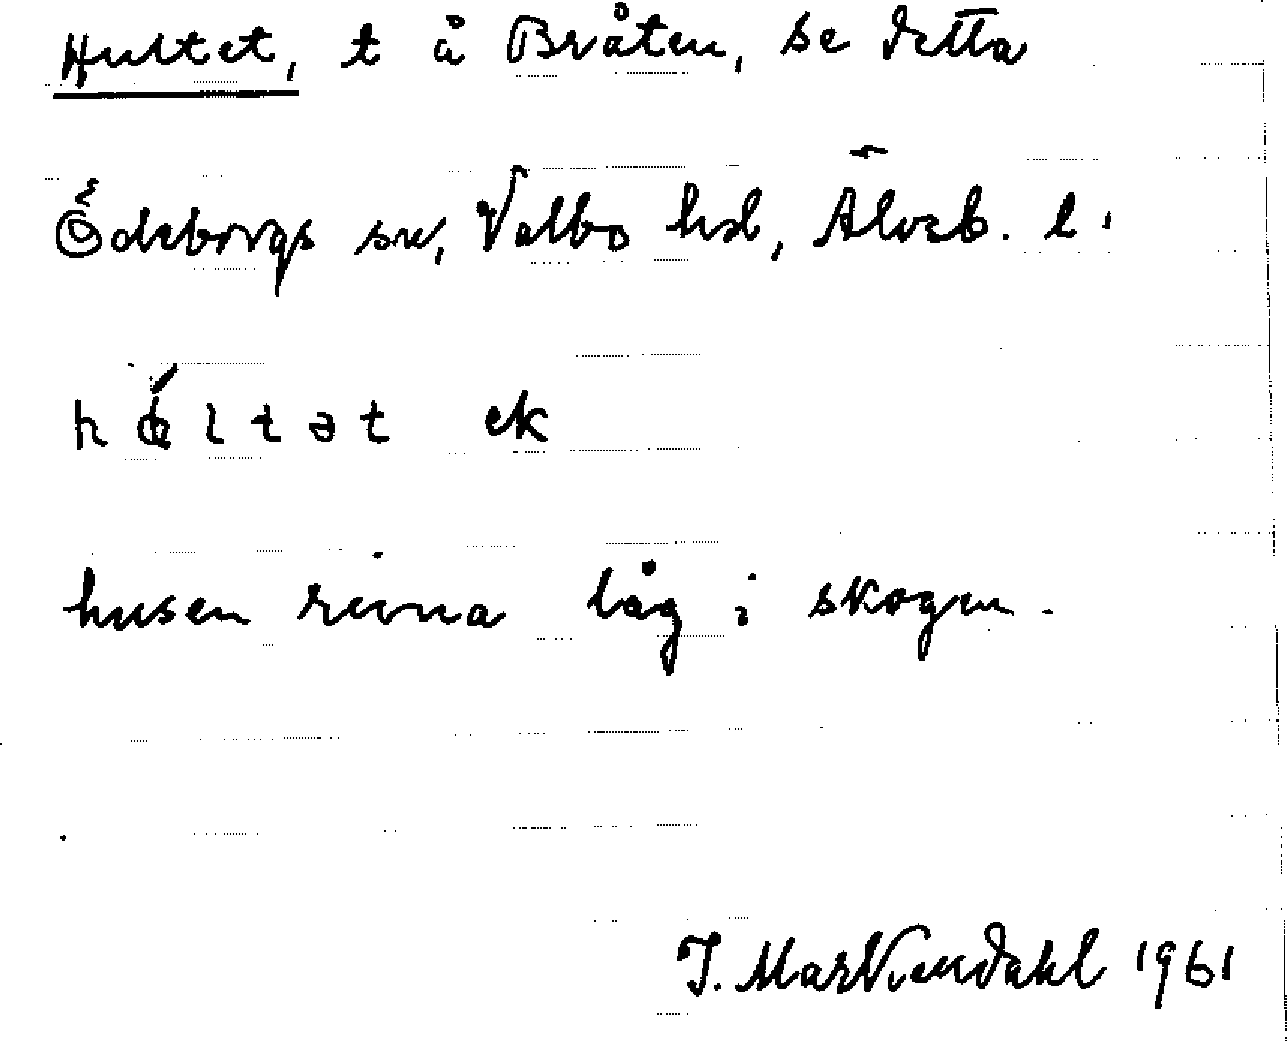 Hultet, t å Bråten, se detta
Ödeborgs sn, Valbo hd, Älvsb. l.
hɵ́ltət ek
husen rivna låg i skogen.
J. Markendahl 1961